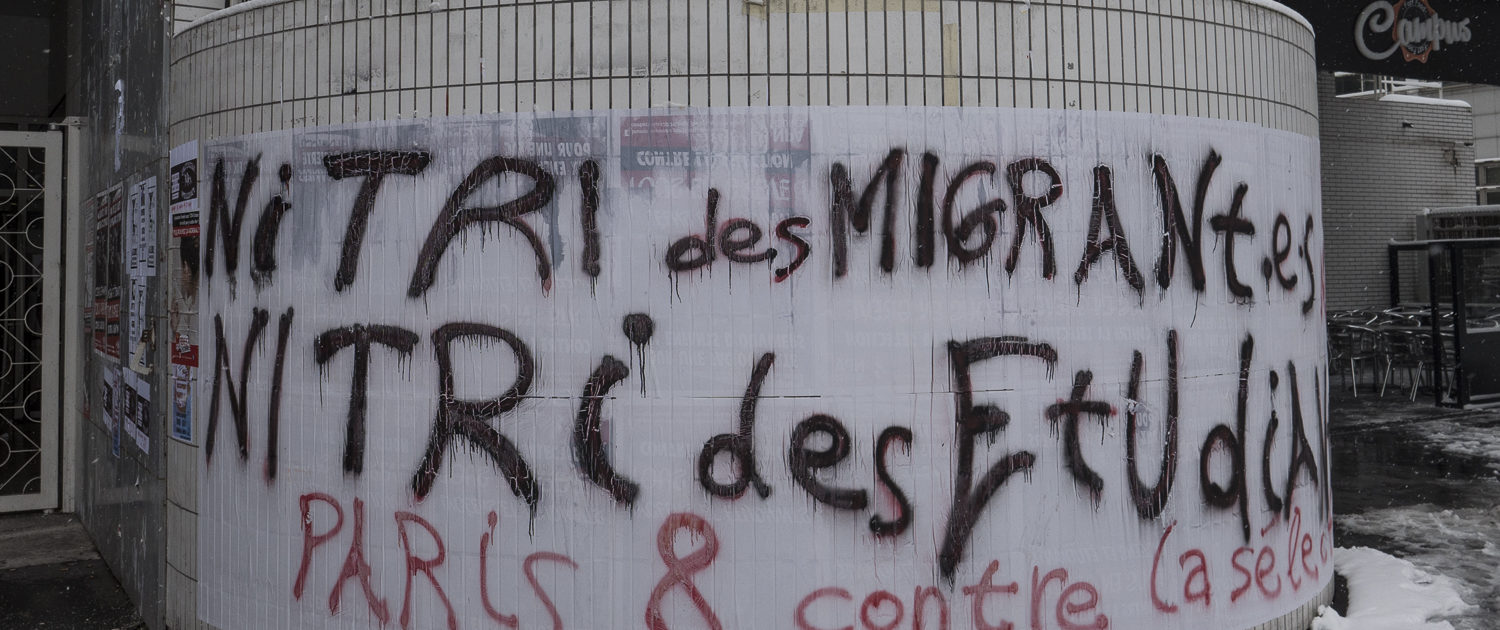 Campus
Ni TRI des MIGRANt.e.s
NI TRi des EtUdiAN
PARis 8 contre la séle